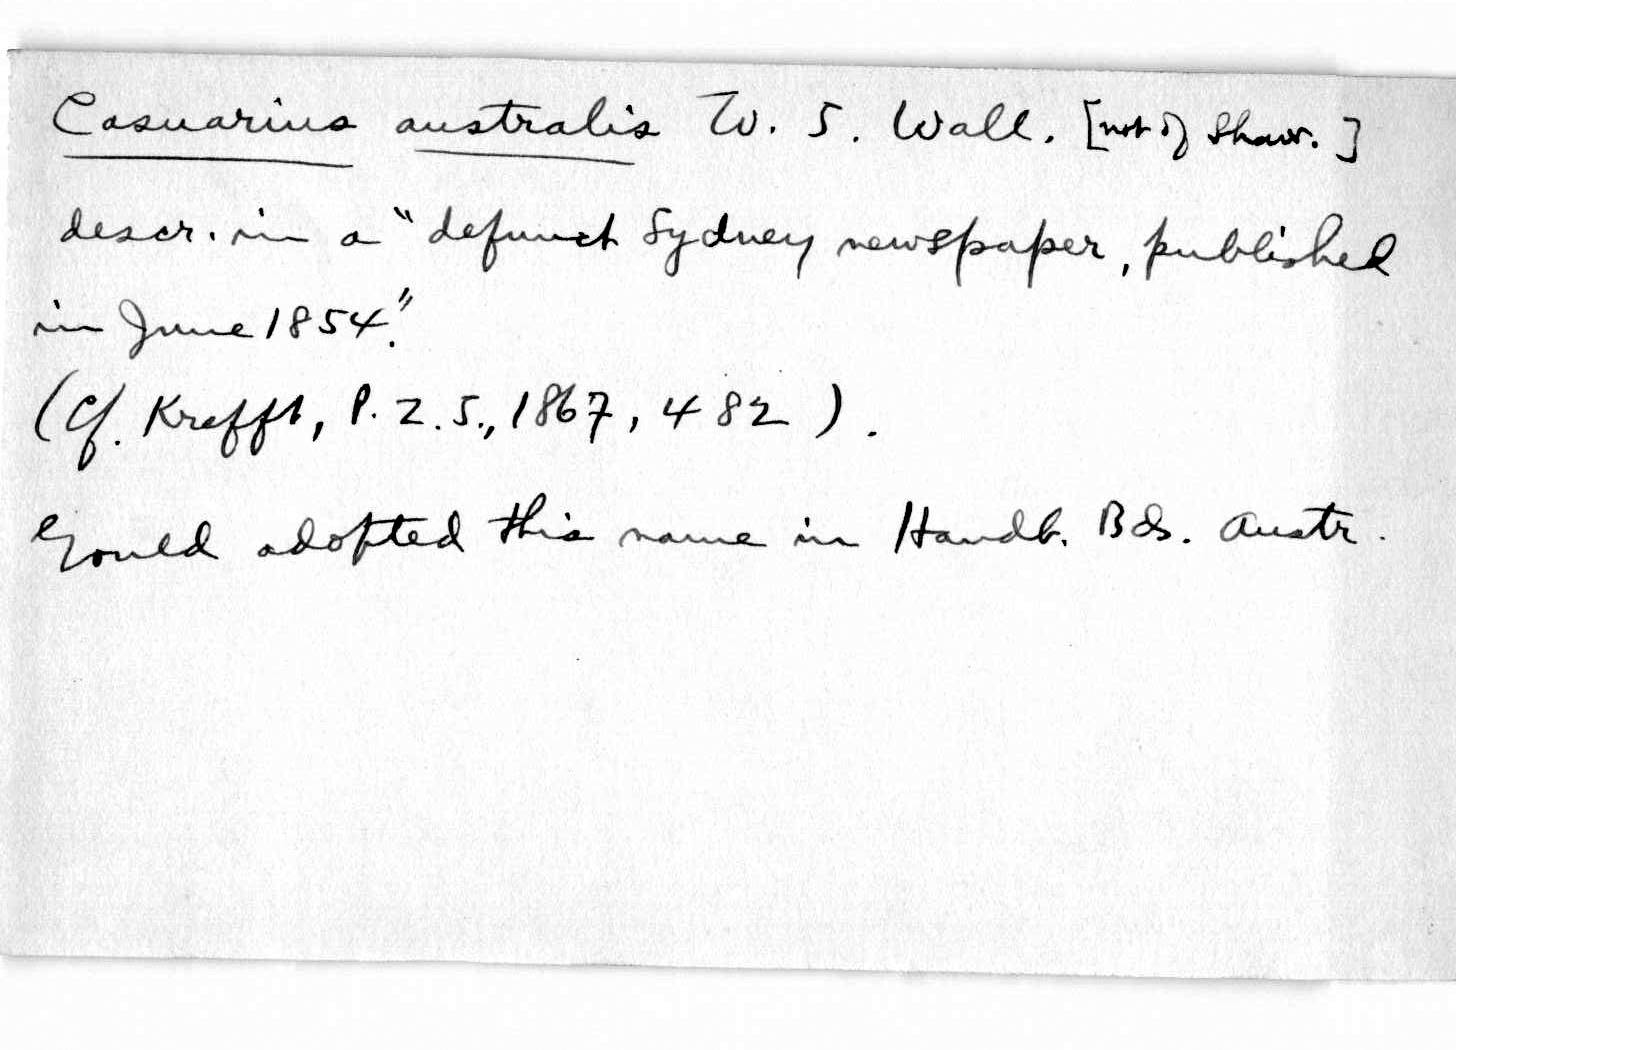 Casuarius australis W. S. Wall. [not of Shaw.]
descr. in a "defunct Sydney newspaper, published
in June 1854".
(Cf. Krefft, P. Z. S., 1867, 482).
Gould adopted this name in Handb. Bds. Austr.